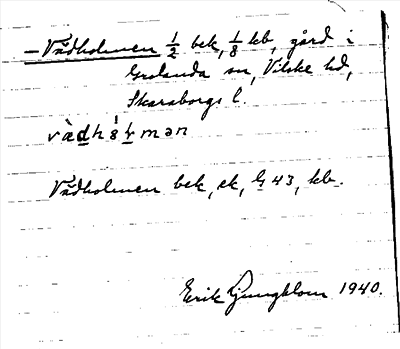 – Vädholmen 1/2 bek, 1/8 kb, gård i
Grolanda sn, Vilske hd,
Skaraborgs l.
vàdh8́ɫmən
Vädholmen bek, ek, h 43, kb.
Erik Ljungblom 1940.